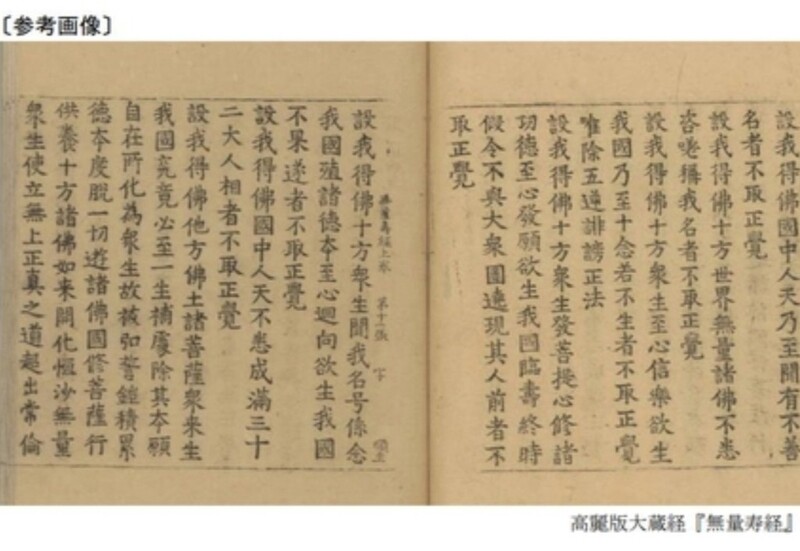 〔参考画像〕
設我得佛國中人天乃至聞有不善
名者不取正覺
設我得佛十方世界無量諸佛不悉
咨嗟稱我名者不取正覺
設我得佛十方衆生至心信樂欲生
我國乃至十念若不生者不取正覺
唯除五逆誹謗正法
設我得佛十方衆生發菩提心修諸
功德至心發願欲生我國臨壽終時
假令不與大衆圍遶現其人前者不
取正覺
無量壽經上卷 第十一張 下
設我得佛十方衆生聞我名号係念
我國殖諸德本至心迴向欲生我國
不果遂者不取正覺
設我得佛國中人天不悉成滿三十
二大人相者不取正覺
設我得佛他方佛土諸菩薩衆来生
我國究竟必至一生補處除其本願
自在所化為衆生故被弘誓鎧積累
德本度脫一切遊諸佛國修菩薩行
供養十方諸佛如来開化恒沙無量
衆生使立無上正真之道超出常倫
高麗版大蔵経『無量寿経』